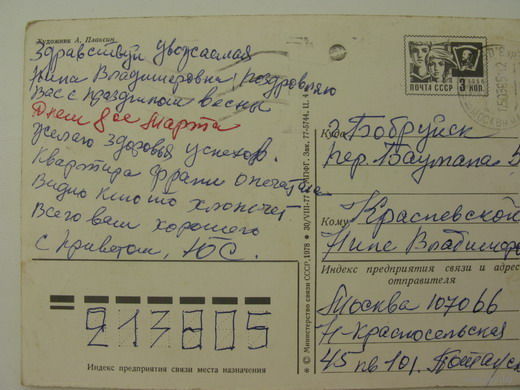 Художник А. Плаксин
Здравствуй Уважаемая
Нина Владимировна Поздравляю
Вас с праздником весны
Днем 8ое Марта
Желаю здоровья успехов.
Квартира Фрати опечатана
Видно кто то хлопочет
Всего вам хорошего
с приветом, Ю.С.
213805
Индекс предприятия связи места назначения
© Министерство связи СССР, 1978 30/VIII-77 г. МПФГ. Зак. 77-5744. Ц. 4
ПОЧТА СССР 3 КОП.
Куда
г. Бобруйск
пер. Баумана 5
Кому
Красневской
Нине Владимиров
Индекс предприятия связи и адрес
отправителя
Москва 107066
Н-Красносельская
45 кв 101.